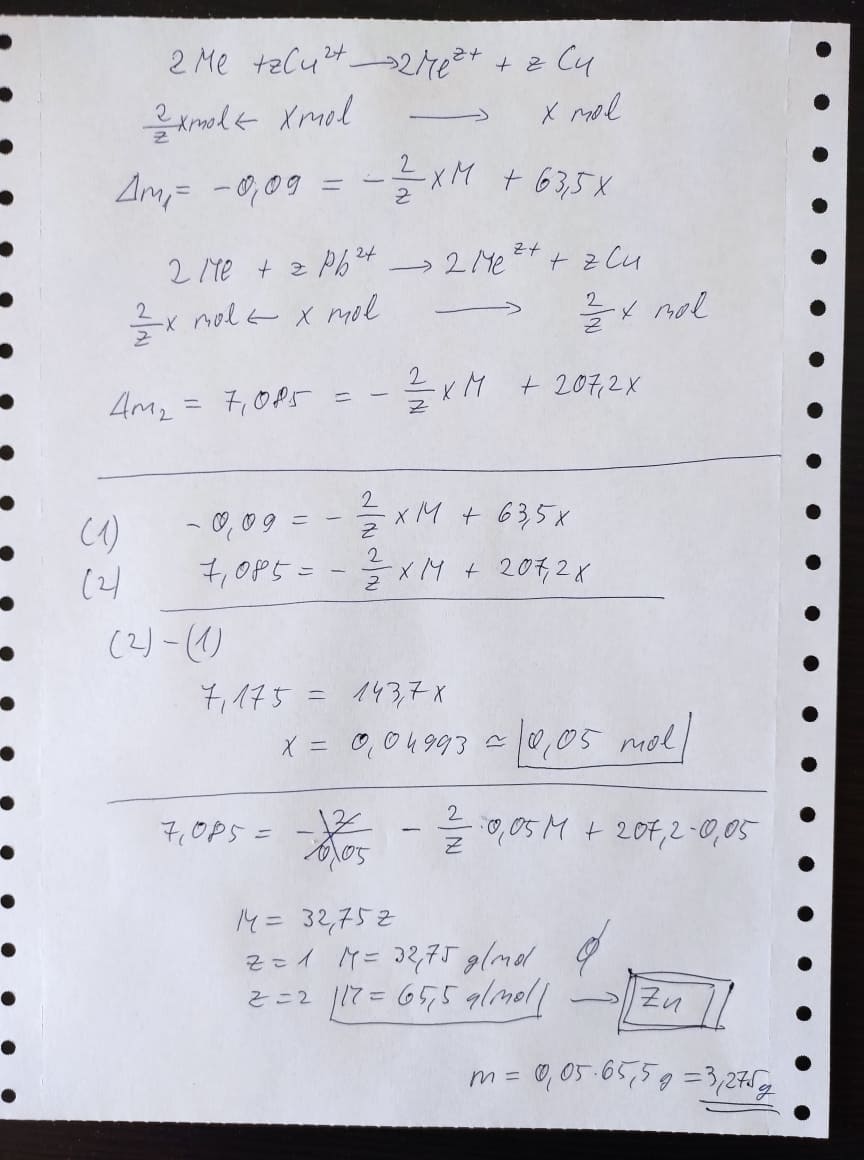 2 Me + zCu²⁺ → 2Meᶻ⁺ + z Cu
2/z x mol ← x mol → x mol
Δm₁ = -0,09 = - 2/z xM + 63,5x
2 Me + z Pb²⁺ → 2 Meᶻ⁺ + z Cu
2/z x mol ← x mol → 2/z x mol
Δm₂ = 7,085 = - 2/z xM + 207,2x
(1) -0,09 = - 2/z xM + 63,5x
(2) 7,085 = - 2/z xM + 207,2x
(2)-(1)
7,175 = 143,7x
x = 0,04993 ≃ 0,05 mol
7,085 = - 2/z · 0,05M + 207,2·0,05
M = 32,75 z
z = 1 M = 32,75 g/mol ∅
z = 2 M = 65,5 g/mol → Zn
m = 0,05·65,5 g = 3,275g